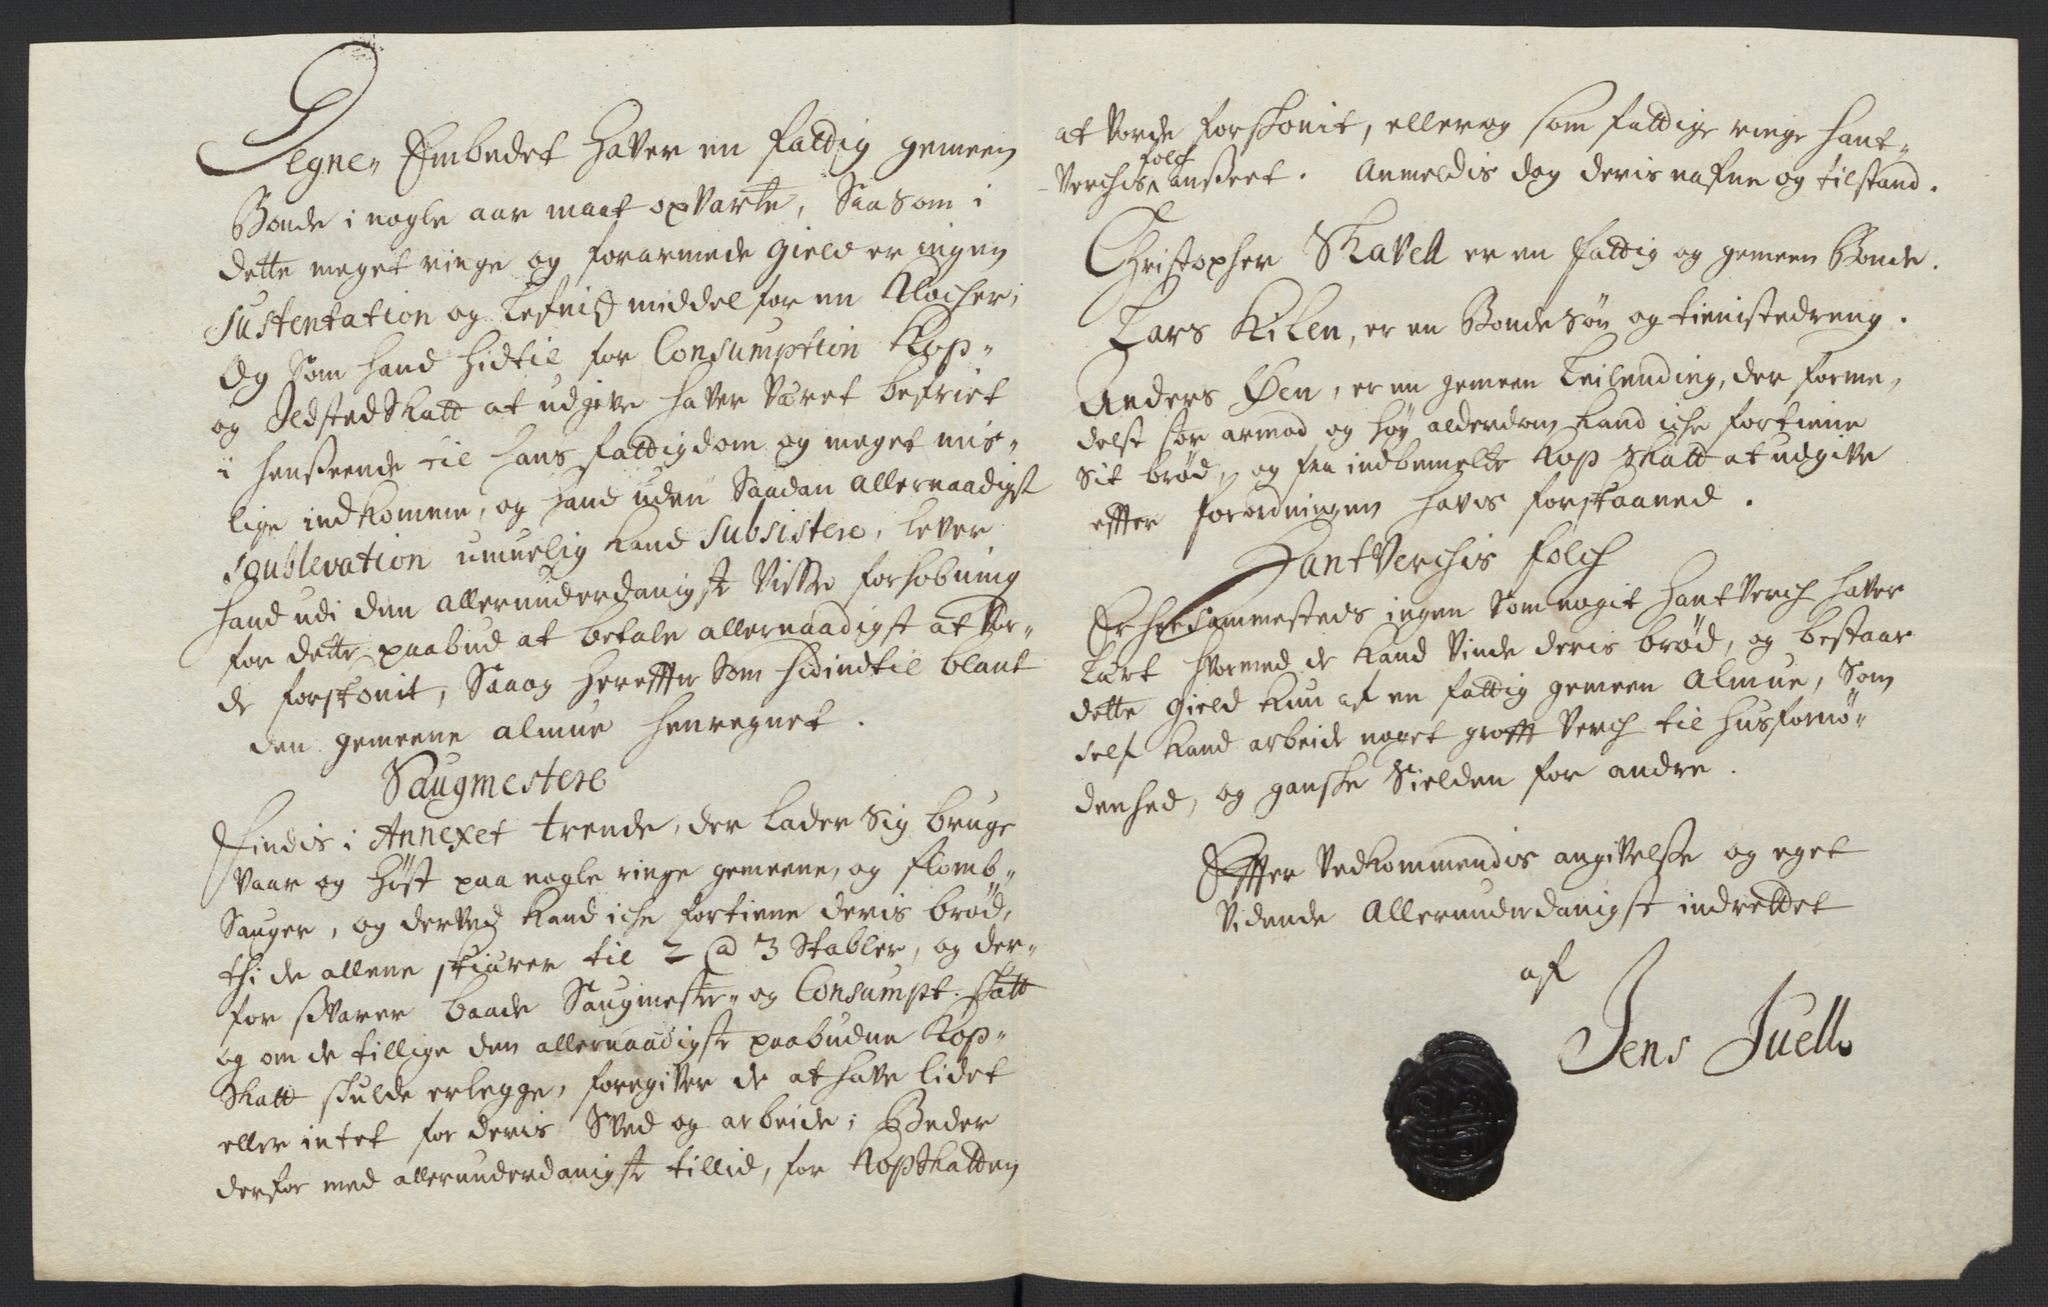 Degne- Embedet haver en fattig gemeen
Bonde i nogle aar maat opvarte, Saasom i
dette meget ringe og forarmede gield er ingen
Sustentation og Lefniß middel for en Klocher;
Og som hand hidtil for Consumption Kop-
og Ildsted Skatt at udgive haver været befriet
i henseende til hans fattigdom og meget mis-
lige indkomme, og hand uden Saadan allernaadigst
soublevation umuelig kand subsistere, lever
hand udi den allerunderdanigste Visse forhobning
for dette paabud at betale allernaadigst at vor-
de forskonit, Saa og hereffter som hidindtil blant
den gemeene almue henregnet.
Saugmestere
Findis i Annexet trende, der lader sig bruge
vaar og høst paa nogle ringe gemeene, og flomb-
Sauger, og derved kand iche fortiene deris brød,
thi de allene skiærer til 2 a 3 Stabler, og der-
for svarer baade Saugmester- og Consumpt. skatt
og om de tillige den allernaadigste paabudne Kop-
Skatt skulde erlegge, foregiver de at have lidet
eller intet for deris Sved og arbeide; Beder
derfor med allerunderdanigste tillid, for Kopskatten
at vorde forskonit, eller og som fattige ringe hant-
verchis folch anseet. Anmeldis dog deris nafne og tilstand.
Christopher Skavell er en fattig og gemeen Bonde.
Lars Kilen, er en Bonde søn og tienistedreng.
Anders Øen, er en gemeen Leilending, der forme-
delst sør armod og høy alderdom kand iche fortiene
sit brød, og fra indbemelte Kop skatt at udgive
effter forordningen havis forskaaned.
Hantverchis folch
Er her sammesteds ingen som nogit hantverch haver
lært hvormed de kand vinde deris brød, og bestaar
dette gield kun af en fattig gemeen Almue, som
self kand arbeide noget grofft verch til husfornø-
denhed, og ganske sielden for andre.
Effter Vedkommendis angivelse og eget
vidende Allerunderdanigst indrettet
af
Jens Juell.